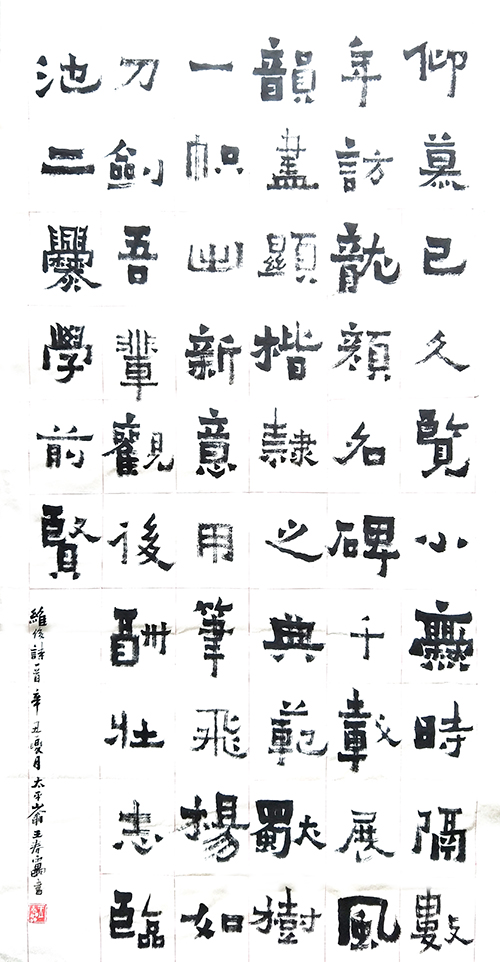 仰慕已久覽小爨時隔數
年訪龍顏名碑千載展風
韻盡顯楷隸之典範獨樹
一幟出新意用筆飛揚如
刀劍吾輩觀後酬壯志臨
池二爨學前賢
維俊詩一首辛丑夏月太平王春書